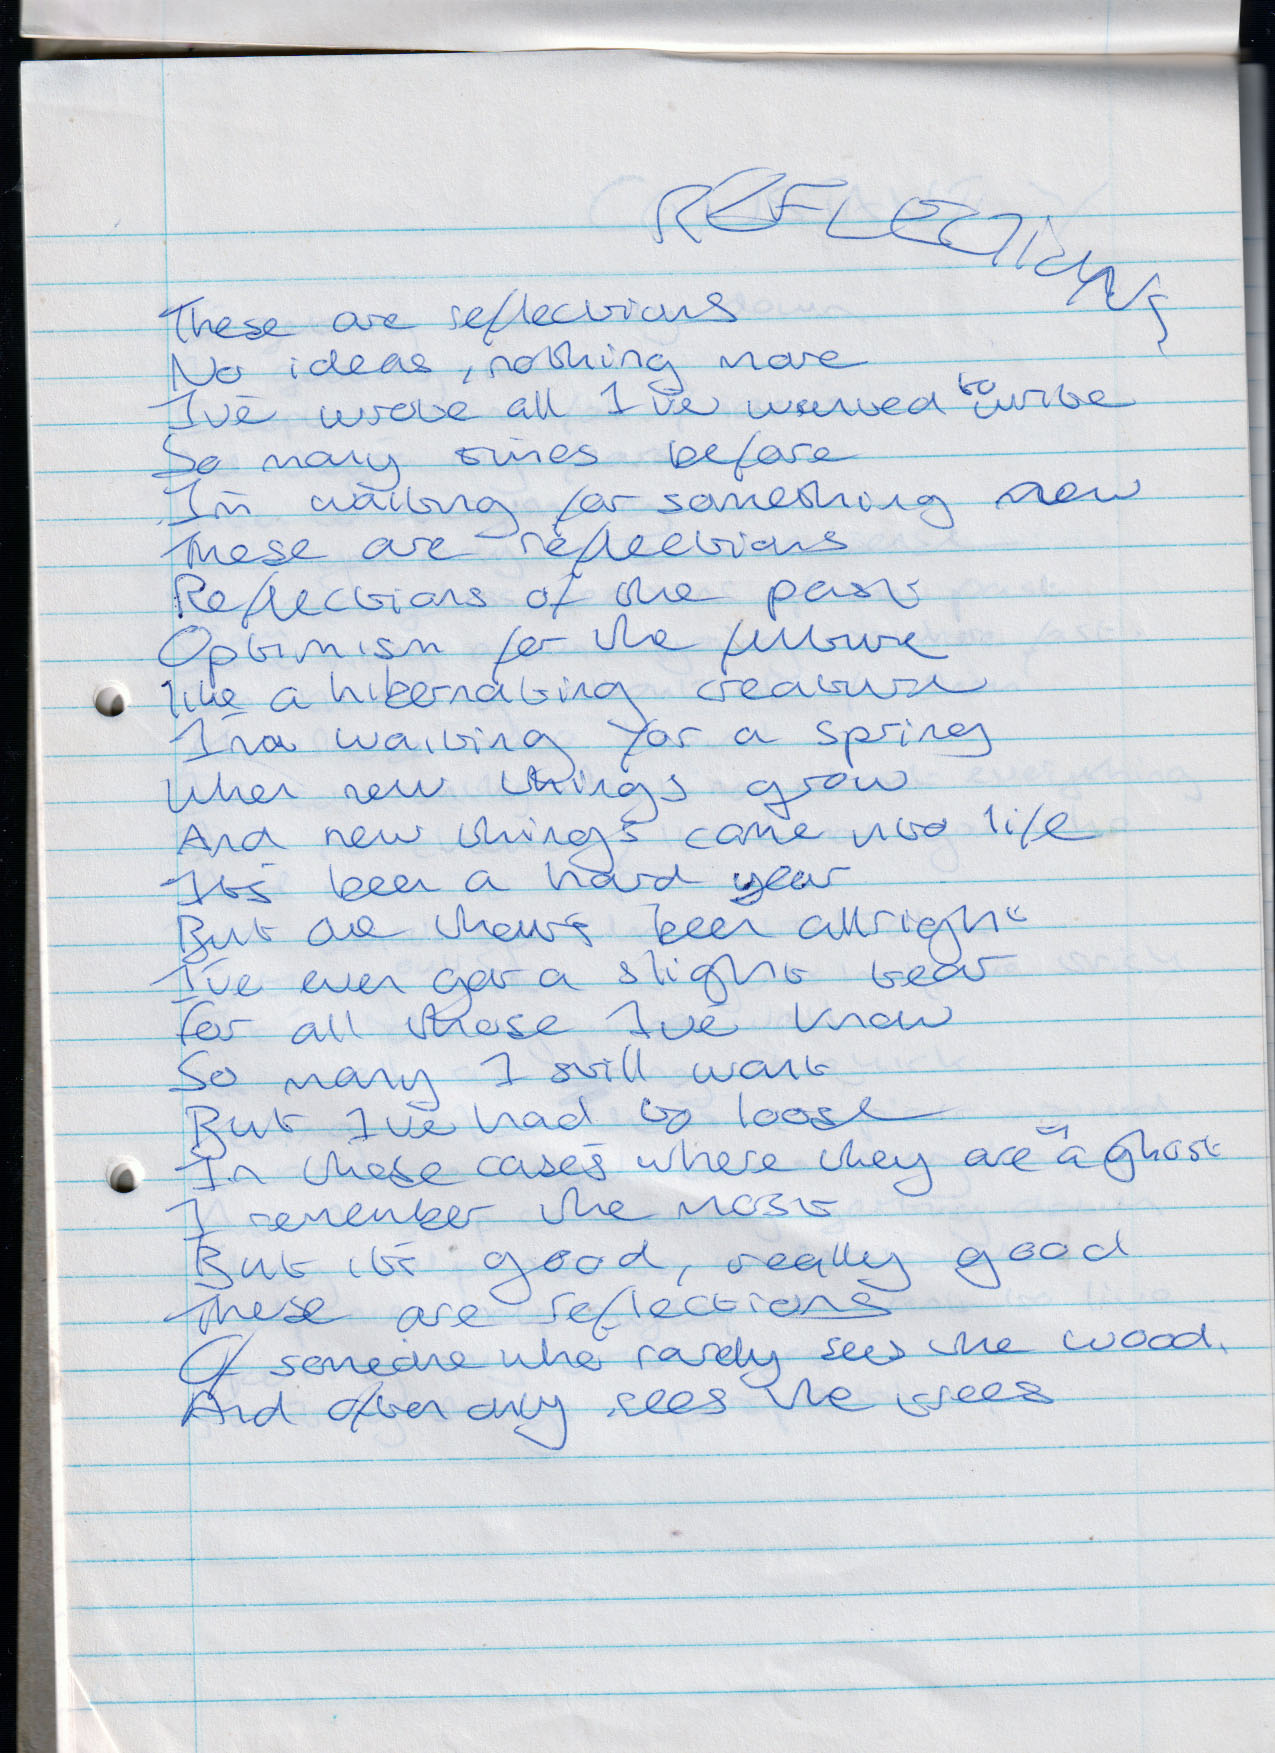 REFLECTIONS
These are reflections
No ideas, nothing more
I've wrote all I've wanted to write
So many times before
I'm waiting for something new
These are reflections
Reflections of the past
Optimism for the future
like a hibernating creature
I'm waiting for a spring
When new things grow
And new things come into life
It's been a hard year
But one that's been allright
I've even got a slight tear
for all those I've know
So many I still want
But I've had to loose
In these cases where they are a ghost
I remember the most
But it's good, really good
These are reflections
Of someone who rarely sees the wood.
And often only sees the trees